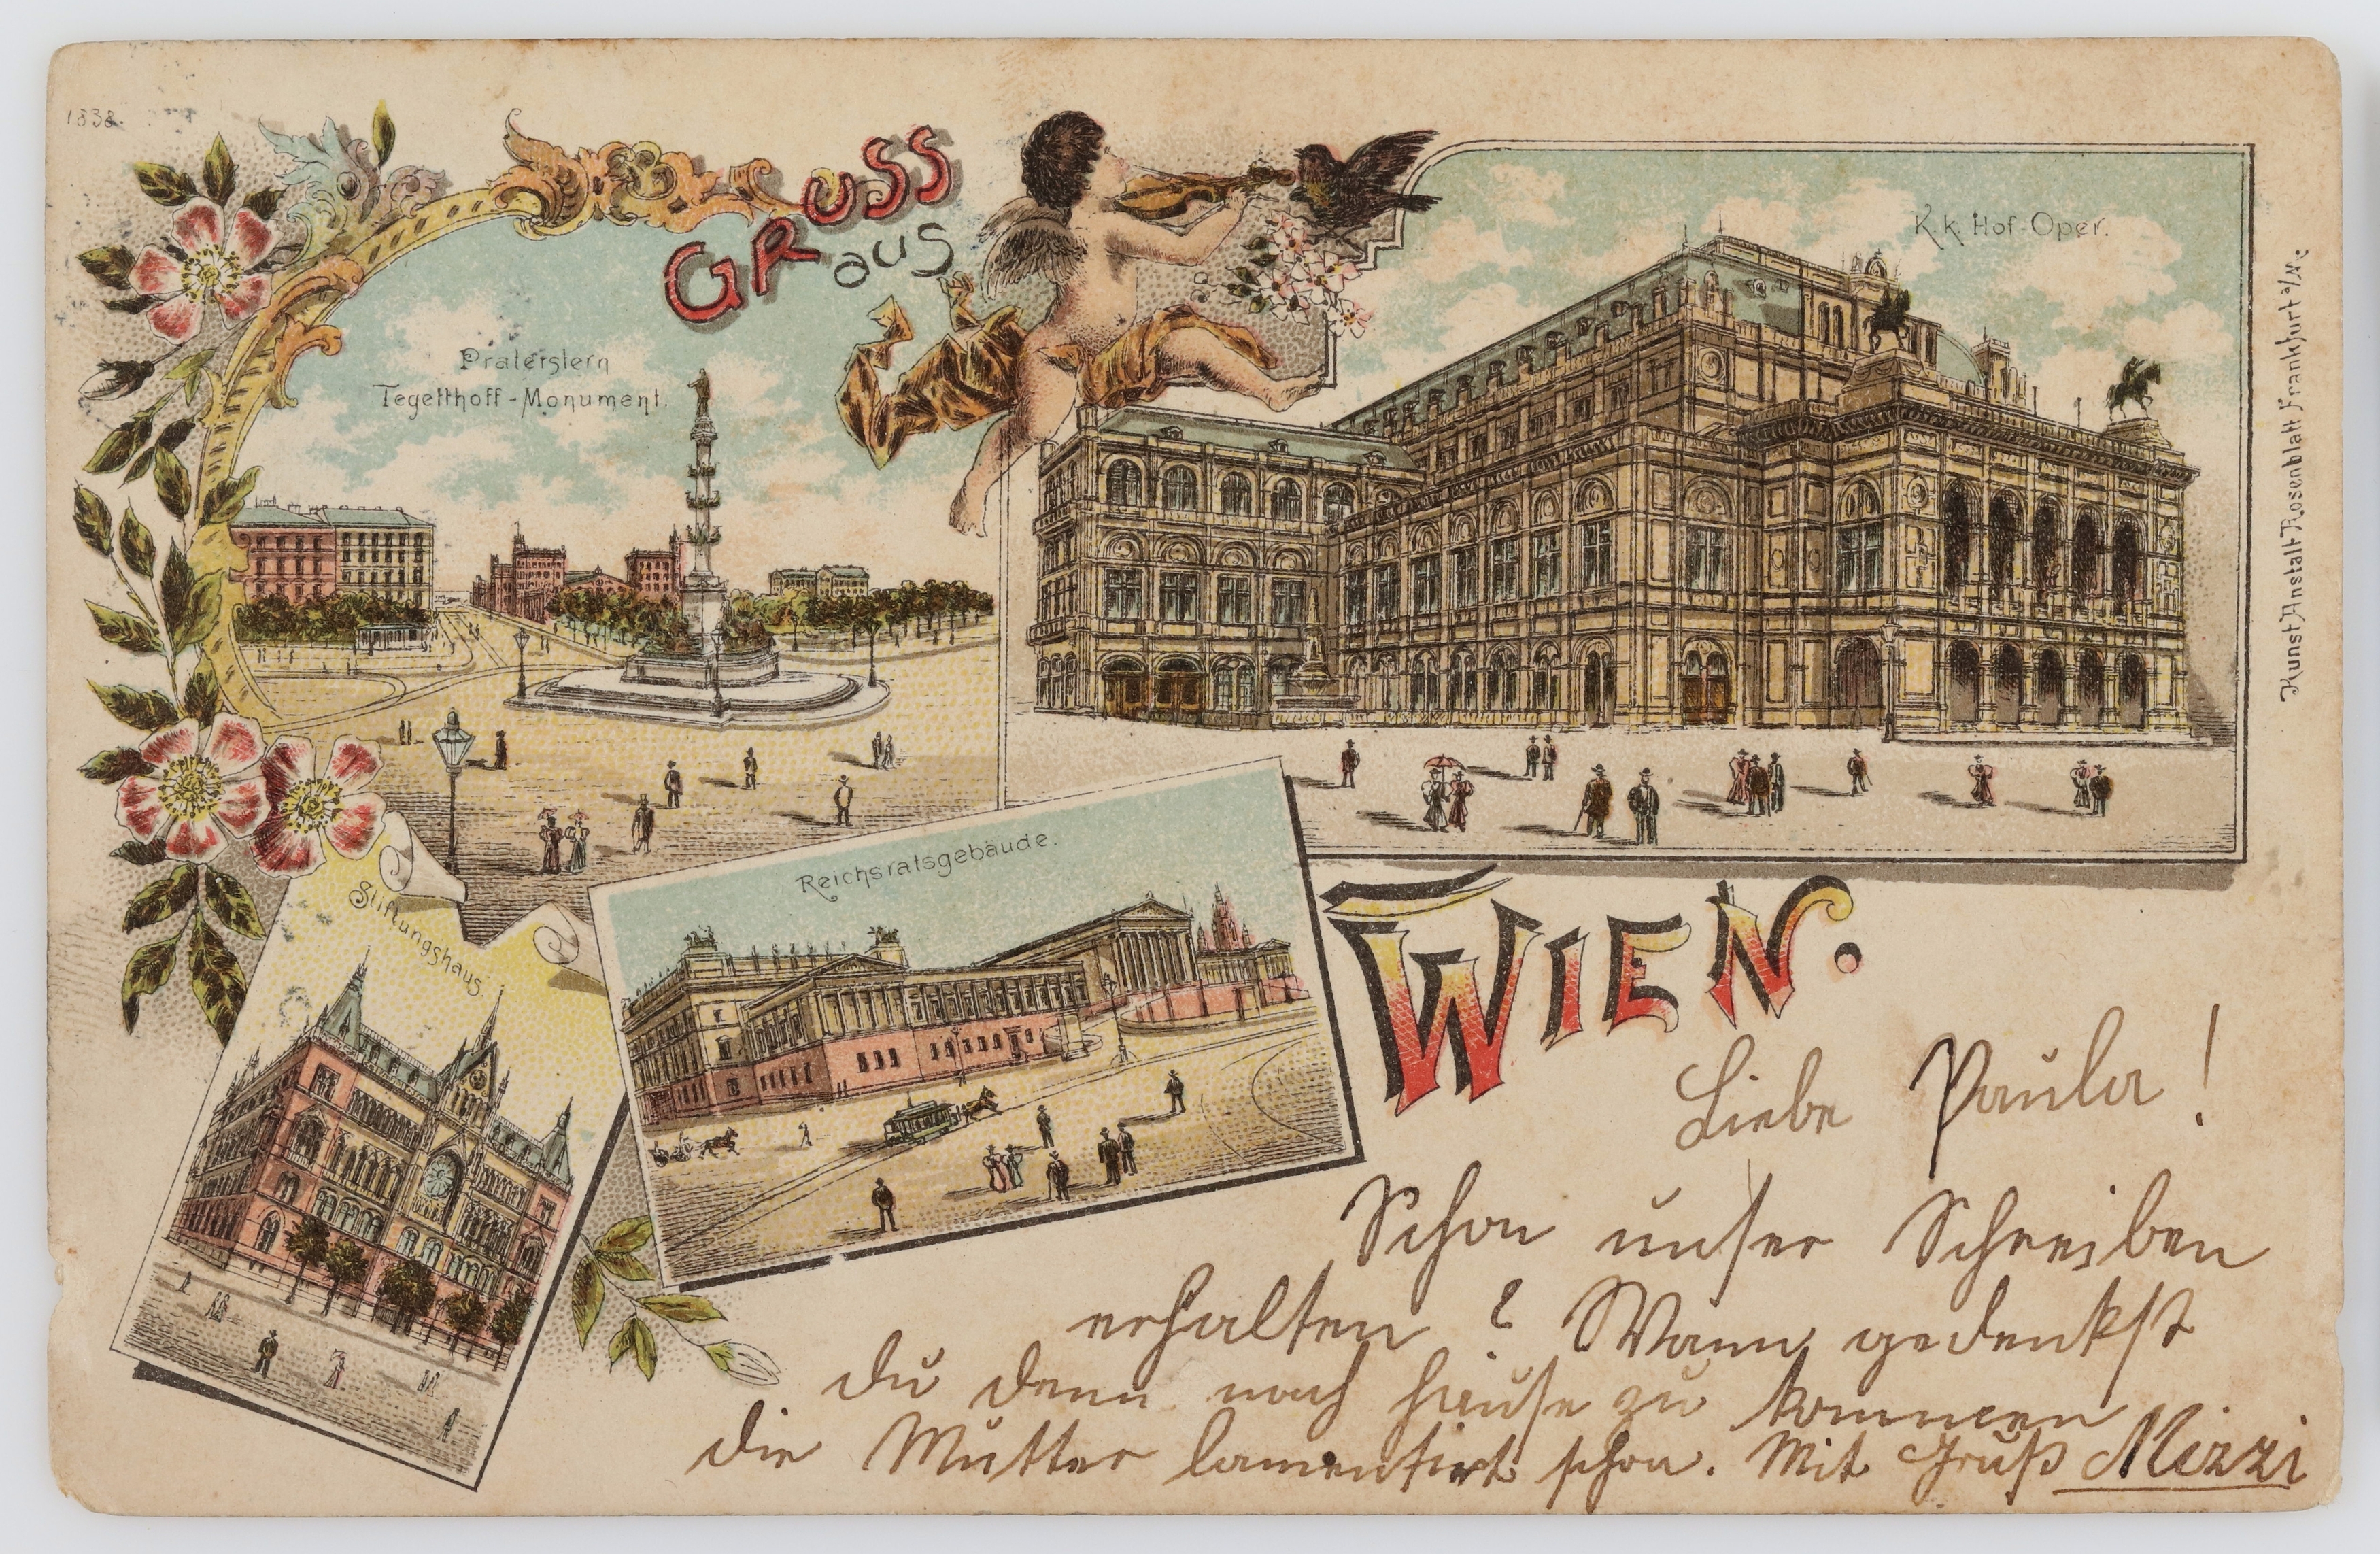 1838.
GRUSS
aus
Praterstern
Tegetthoff-Monument.
K. k. Hof-Oper.
Kunst Anstalt Rosenblatt Frankfurt a/M.
Reichsratsgebäude.
Stiftungshaus.
WIEN.
Liebe Paula!
Schon unser Schreiben
erhalten? Wann gedenkst
du denn nach hause zu kommen
die Mutter lamentirt schon. Mit Gruß Mizzi